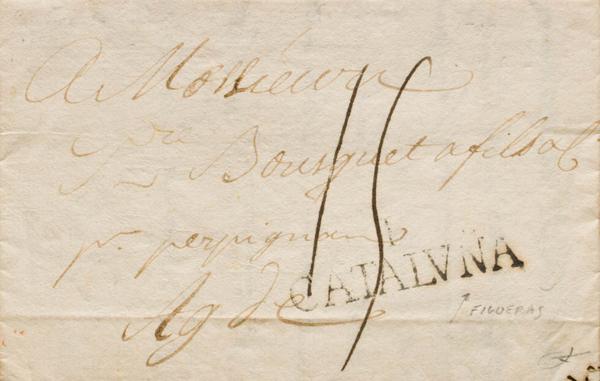 A Monsieur
Pre Bousquet & fils ol
pr. perpignan
Agde
15
CATALVÑA
FIGUERAS